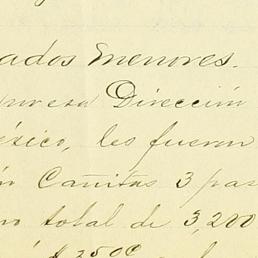 ados Menores.
presa Dirección
éxico, les fueron
Cañitas 3 pas
total de 3,200
$2500